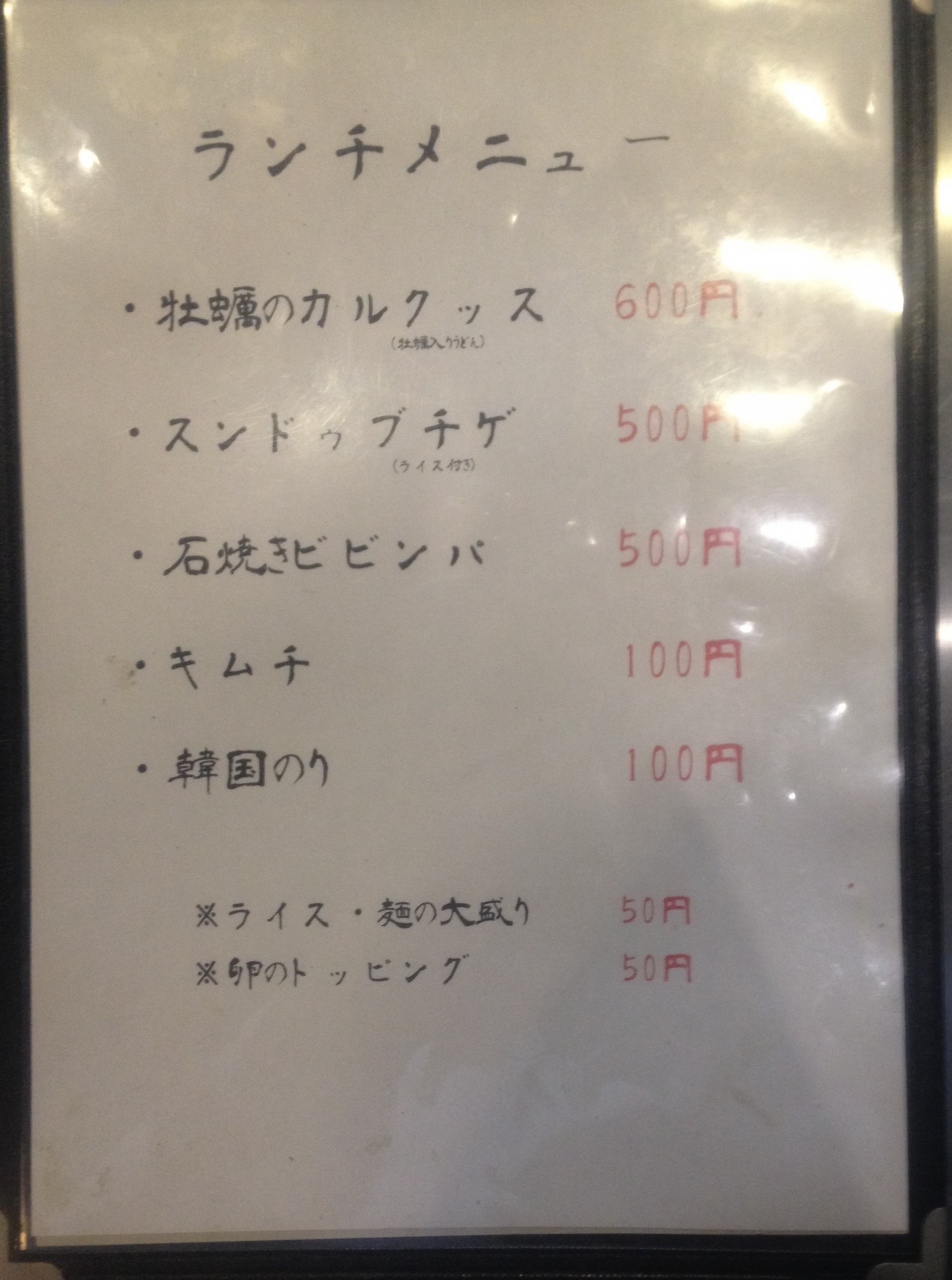 ランチメニュー
・牡蠣のカルクッス 600円
(牡蠣入りうどん)
・スンドゥブチゲ 500円
(ライス付き)
・石焼きビビンバ 500円
・キムチ 100円
・韓国のり 100円
※ライス・麺の大盛り 50円
※卵のトッピング 50円